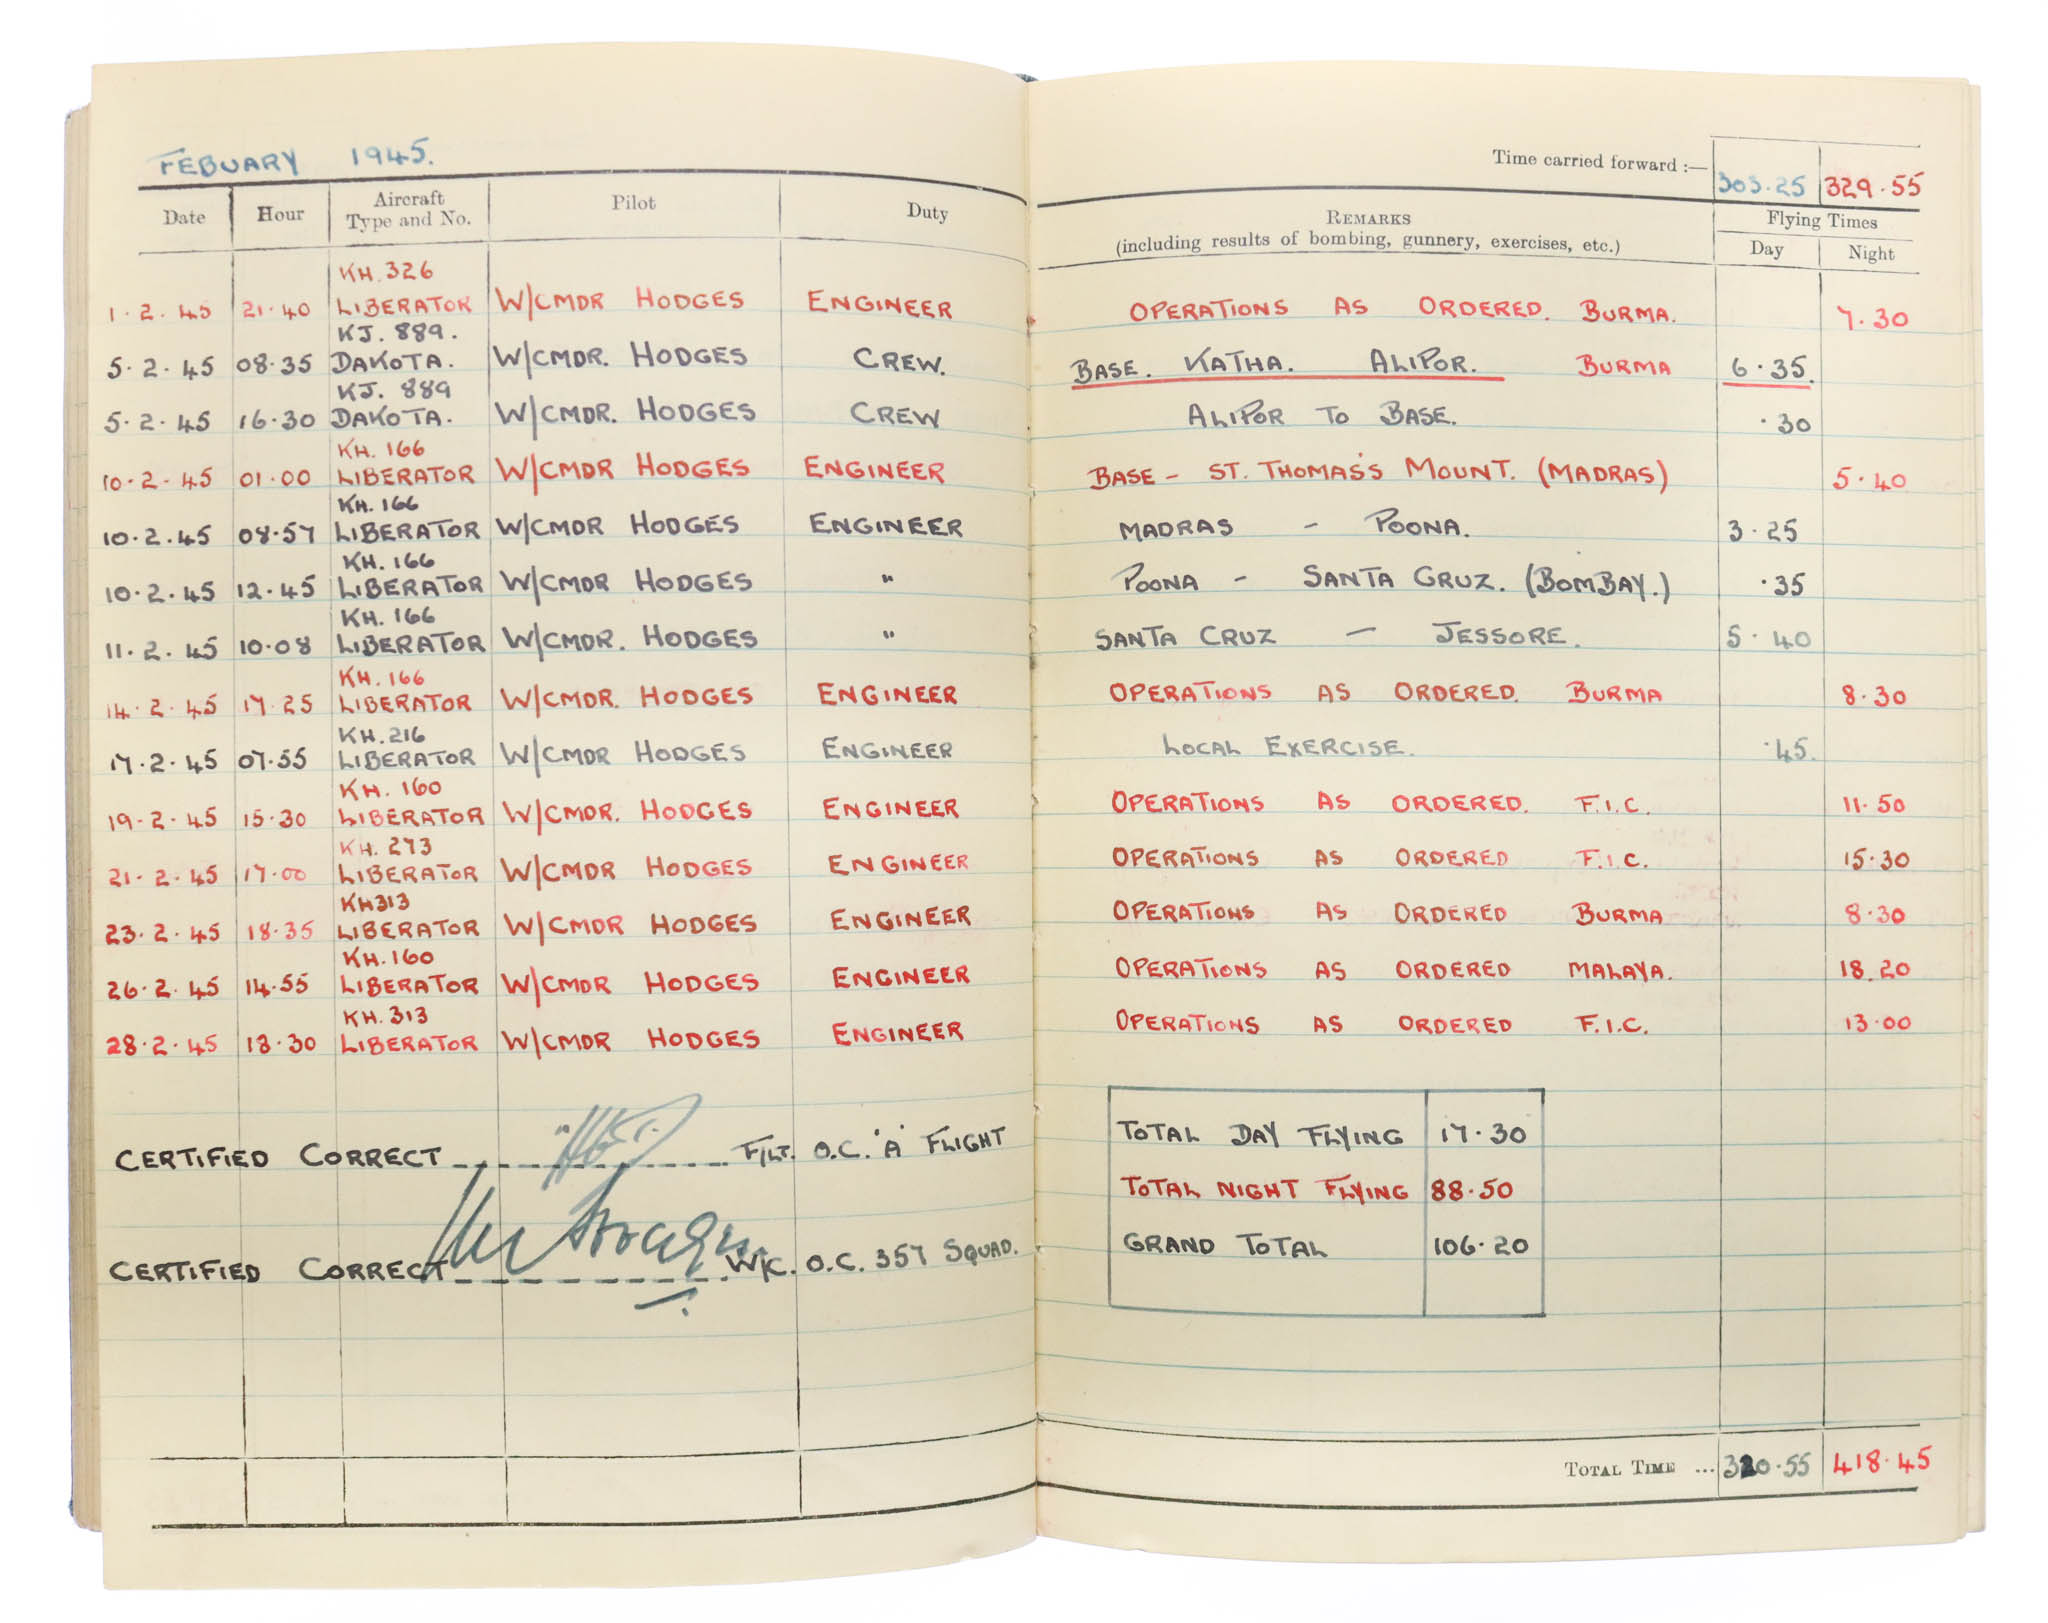 FEBUARY 1945.
Time carried forward :— 303·25 329·55
Date Hour Aircraft Type and No. Pilot Duty REMARKS (including results of bombing, gunnery, exercises, etc.) Flying Times Day Night
KH. 326
1·2·45 21·40 LIBERATOR W/CMDR HODGES ENGINEER OPERATIONS AS ORDERED. BURMA. 7·30
KJ. 889.
5·2·45 08·35 DAKOTA. W/CMDR. HODGES CREW. BASE. KATHA. ALIPOR. BURMA 6·35.
KJ. 889
5·2·45 16·30 DAKOTA. W/CMDR. HODGES CREW ALIPOR TO BASE. ·30
KH. 166
10·2·45 01·00 LIBERATOR W/CMDR HODGES ENGINEER BASE – ST. THOMAS'S MOUNT. (MADRAS) 5·40
KH. 166
10·2·45 08·57 LIBERATOR W/CMDR HODGES ENGINEER MADRAS – POONA. 3·25
KH. 166
10·2·45 12·45 LIBERATOR W/CMDR HODGES " POONA – SANTA CRUZ. (BOMBAY.) ·35
KH. 166
11·2·45 10·08 LIBERATOR W/CMDR. HODGES " SANTA CRUZ – JESSORE. 5·40
KH. 166
14·2·45 17·25 LIBERATOR W/CMDR. HODGES ENGINEER OPERATIONS AS ORDERED. BURMA 8·30
KH. 216
17·2·45 07·55 LIBERATOR W/CMDR HODGES ENGINEER LOCAL EXERCISE. ·45.
KH. 160
19·2·45 15·30 LIBERATOR W/CMDR. HODGES ENGINEER OPERATIONS AS ORDERED. F.I.C. 11·50
KH. 273
21·2·45 17·00 LIBERATOR W/CMDR HODGES ENGINEER OPERATIONS AS ORDERED F.I.C. 15·30
KH313
23·2·45 18·35 LIBERATOR W/CMDR HODGES ENGINEER OPERATIONS AS ORDERED BURMA 8·30
KH. 160
26·2·45 14·55 LIBERATOR W/CMDR HODGES ENGINEER OPERATIONS AS ORDERED MALAYA. 18.20
KH. 313
28·2·45 13·30 LIBERATOR W/CMDR HODGES ENGINEER OPERATIONS AS ORDERED F.I.C. 13·00
CERTIFIED CORRECT F/LT. O.C. 'A' FLIGHT
CERTIFIED CORRECT W/C. O.C. 357 SQUAD.
TOTAL DAY FLYING 17·30
TOTAL NIGHT FLYING 88·50
GRAND TOTAL 106·20
TOTAL TIME ... 320·55 418·45